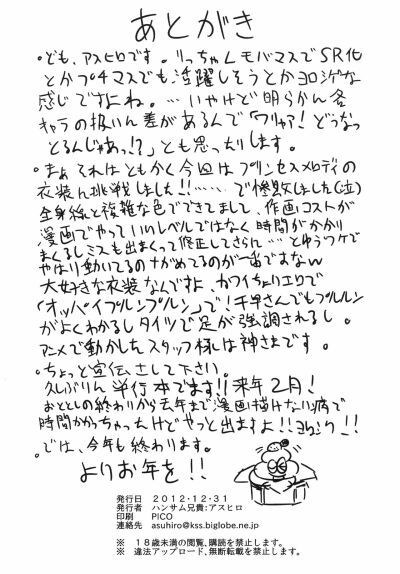 あとがき
・ども、アスヒロです。りっちゃんモバマスでSR化
とかプチマスでも活躍しそうとかヨロシゲな
感じですよね。…いやけど明らかん各
キャラの扱いん差があるんで「ワリャア!どうなっ
とるんじゃあっ!?」とも思ったりします。
・まぁそれはともかく今回はプリンセスメロディの
衣装ん挑戦しました!!……で惨敗しました(泣)
全身線と複雑な色でできてまして、作画コストが
漫画でやっていいレベルではなく時間がかかり
まくるしミスも出まくって修正してさらん…とゆうワケで
やはり動いてるのナガめてるのが一番ですなw
大好きな衣装なんですよ、カワイちょりエロで
「オッパイプルンプルン」で!千早さんでもプルルン
がよくわかるしタイツで足が強調されるし。
アニメで動かしたスタッフ様は神さまです。
・ちょっと宣伝さして下さい。
久しぶりん単行本でます!!来年2月!
おととしの終わりから去年まで漫画描けない病で
時間かかっちゃったけどやっと出ますよ!!ヨロシク!!
・では、今年も終わります。
よりお年を!!
発行日 2012・12・31
発行者 ハンサム兄貴:アスヒロ
印刷 PICO
連絡先 asuhiro@kss.biglobe.ne.jp
※ 18歳未満の閲覧、購読を禁止します。
※ 違法アップロード、無断転載を禁止します。